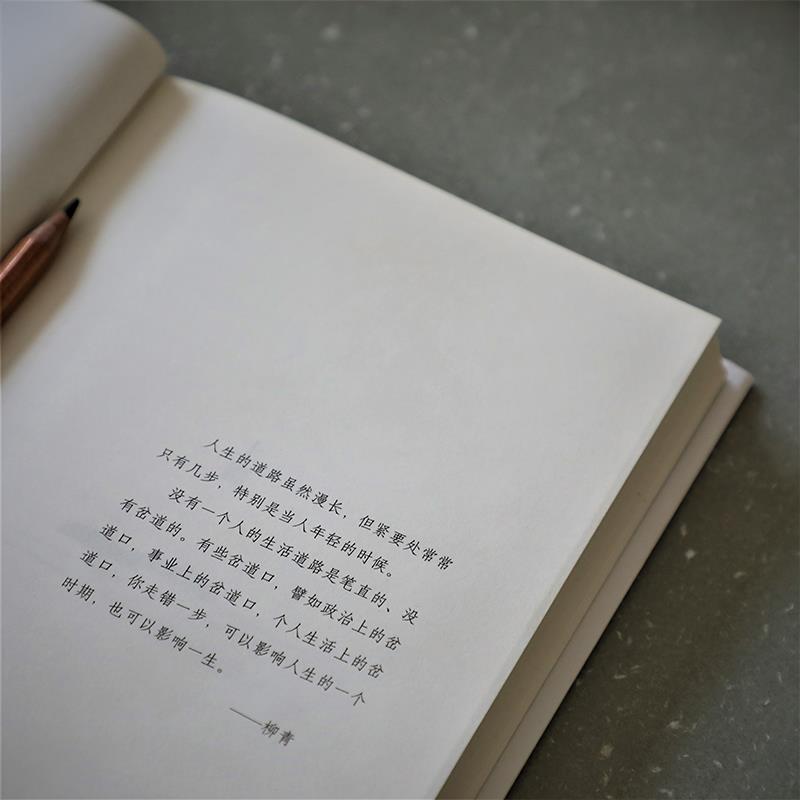 人生的道路虽然漫长，但紧要处常常
只有几步，特别是当人年轻的时候。
没有一个人的生活道路是笔直的、没
有岔道的。有些岔道口，譬如政治上的岔
道口，事业上的岔道口，个人生活上的岔
道口，你走错一步，可以影响人生的一个
时期，也可以影响一生。
——柳青